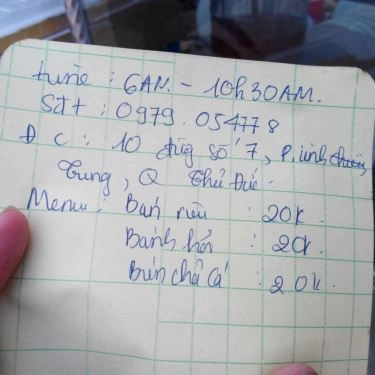 time : 6AM - 10h30AM.
Sđt : 0979.054778
Đ C : 10 đừg số 7, P. Linh Chiểu
Trung, Q Thủ Đức.
Menu : Bań riêu : 20k
Bánh hỏi : 20k
Bún chả cá : 20k.